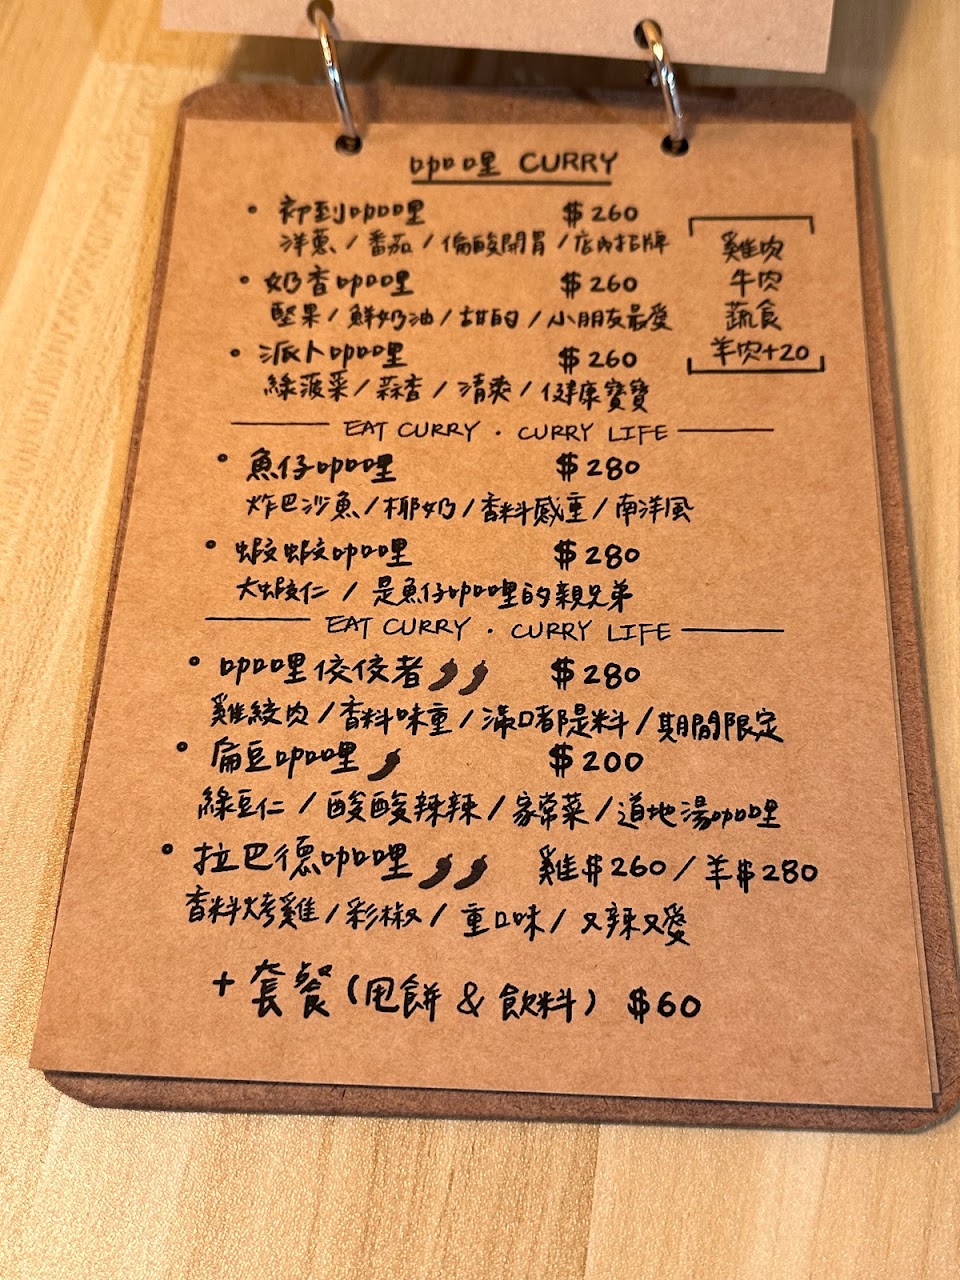 咖哩 CURRY
• 初到咖哩 $260
洋蔥 / 番茄 / 偏酸開胃 / 店內招牌
• 奶香咖哩 $260
堅果 / 鮮奶油 / 甜的 / 小朋友最愛
• 派卜咖哩 $260
綠菠菜 / 蒜香 / 清爽 / 健康寶寶
雞肉
牛肉
蔬食
羊肉+20
EAT CURRY · CURRY LIFE
• 魚仔咖哩 $280
炸巴沙魚 / 椰奶 / 香料感重 / 南洋風
• 蝦蝦咖哩 $280
大蝦仁 / 是魚仔咖哩的親兄弟
EAT CURRY · CURRY LIFE
• 咖哩佼佼者 $280
雞絞肉 / 香料味重 / 滿口都是料 / 期間限定
• 扁豆咖哩 $200
綠豆仁 / 酸酸辣辣 / 家常菜 / 道地湯咖哩
• 拉巴德咖哩 雞$260 / 羊$280
香料烤雞 / 彩椒 / 重口味 / 又辣又愛
+ 套餐 (甩餅 & 飲料) $60